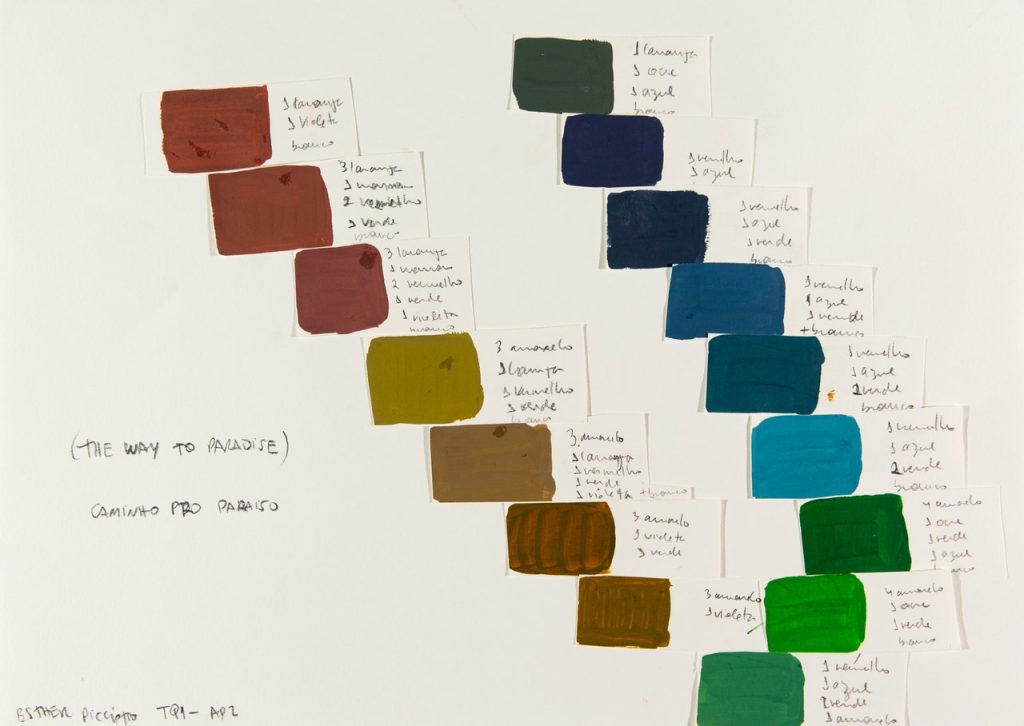 1 laranja
1 violeta
branco
3 laranja
1 marrom
2 vermelho
1 verde
branco
3 laranja
1 marrom
2 vermelho
1 verde
1 violeta
branco
3 amarelo
1 laranja
1 vermelho
1 verde
branco
3 amarelo
1 laranja
1 vermelho
1 verde
1 violeta + branco
3 amarelo
1 violeta
1 verde
3 amarelo
1 violeta
1 laranja
1 ocre
1 azul
branco
1 vermelho
1 azul
1 vermelho
1 azul
1 verde
branco
1 vermelho
1 azul
1 verde
+ branco
1 vermelho
1 azul
2 verde
branco
1 vermelho
1 azul
2 verde
branco
4 amarelo
1 ocre
1 verde
1 azul
branco
4 amarelo
1 ocre
1 verde
branco
1 vermelho
1 azul
verde
1 amarelo
(THE WAY TO PARADISE)
CAMINHO PRO PARAISO
ESTHER TQ1 - AP2